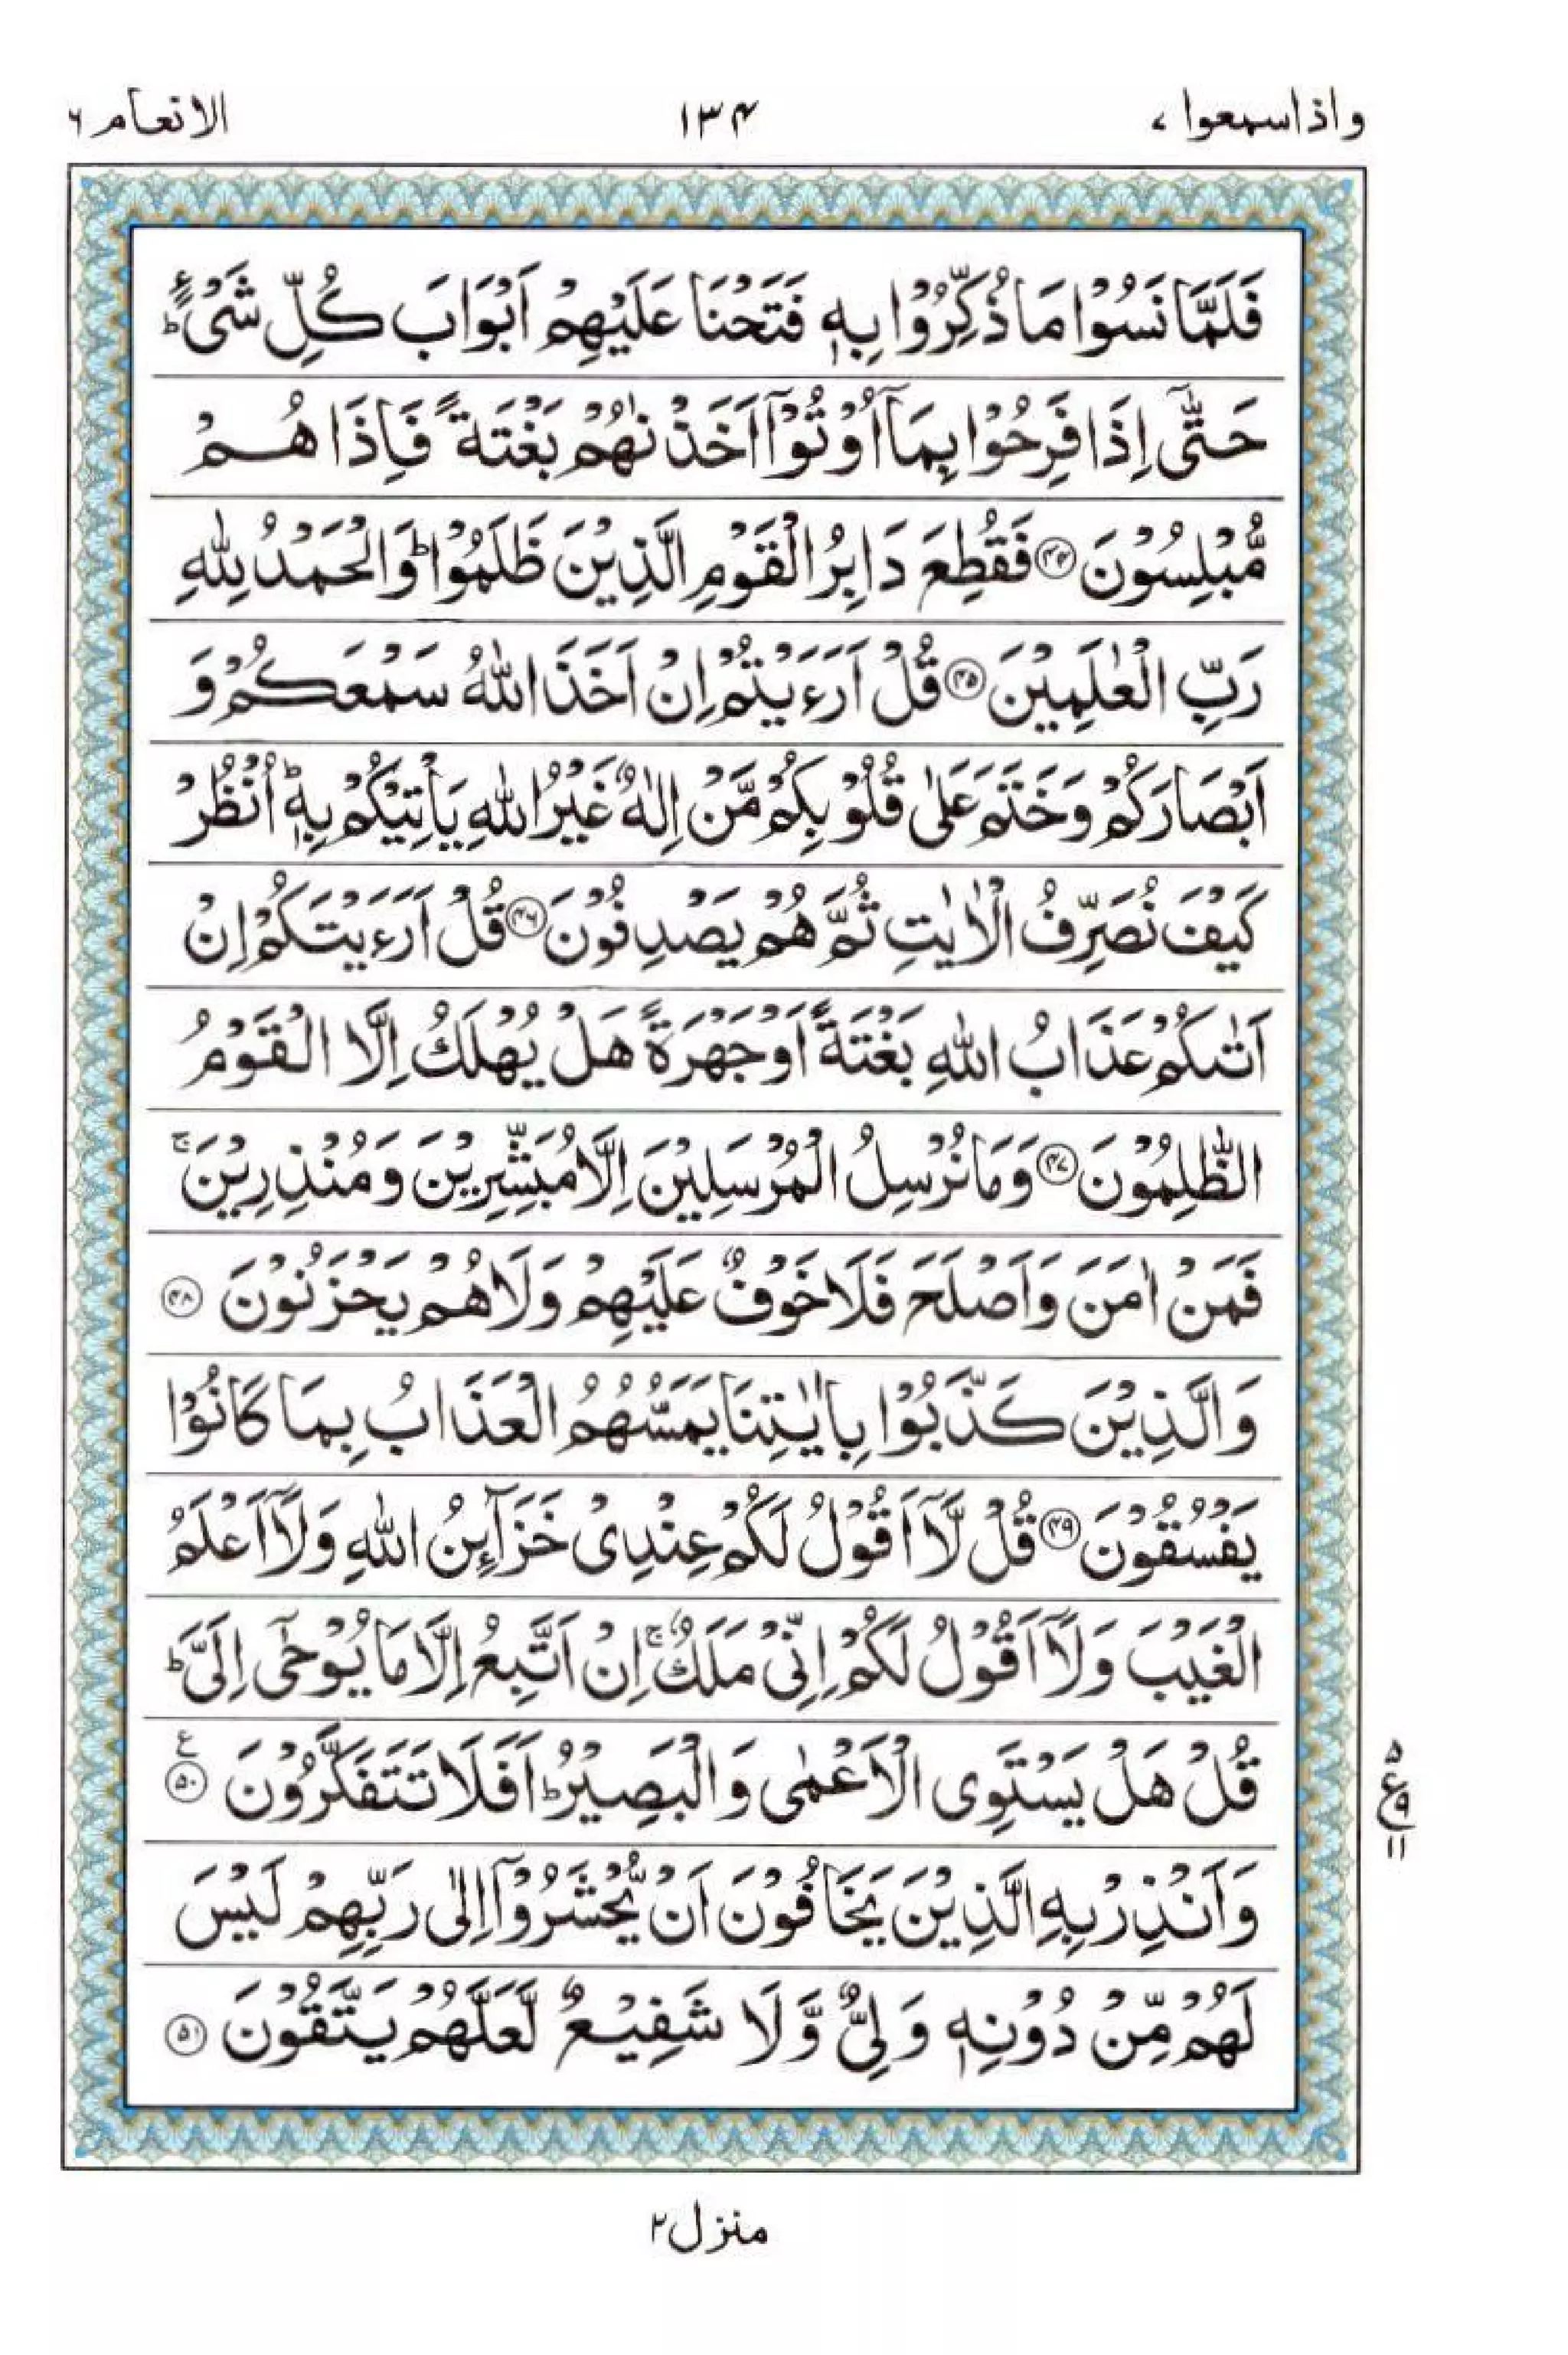 واذاسمعوا ۷
۱۳۴
الانعام ۶
فَلَمَّا نَسُوْا مَا ذُكِّرُوْا بِهٖ فَتَحْنَا عَلَيْهِمْ اَبْوَابَ كُلِّ شَیْءٍ ؕ
حَتّٰۤی اِذَا فَرِحُوْا بِمَاۤ اُوْتُوْۤا اَخَذْنٰهُمْ بَغْتَةً فَاِذَا هُمْ
مُّبْلِسُوْنَ ۝۴۴ فَقُطِعَ دَابِرُ الْقَوْمِ الَّذِيْنَ ظَلَمُوْا ؕ وَالْحَمْدُ لِلّٰهِ
رَبِّ الْعٰلَمِيْنَ ۝۴۵ قُلْ اَرَءَيْتُمْ اِنْ اَخَذَ اللّٰهُ سَمْعَكُمْ وَ
اَبْصَارَكُمْ وَخَتَمَ عَلٰی قُلُوْبِكُمْ مَّنْ اِلٰهٌ غَيْرُ اللّٰهِ يَاْتِيْكُمْ بِهٖ ؕ اُنْظُرْ
كَيْفَ نُصَرِّفُ الْاٰيٰتِ ثُمَّ هُمْ يَصْدِفُوْنَ ۝۴۶ قُلْ اَرَءَيْتَكُمْ اِنْ
اَتٰىكُمْ عَذَابُ اللّٰهِ بَغْتَةً اَوْ جَهْرَةً هَلْ يُهْلَكُ اِلَّا الْقَوْمُ
الظّٰلِمُوْنَ ۝۴۷ وَمَا نُرْسِلُ الْمُرْسَلِيْنَ اِلَّا مُبَشِّرِيْنَ وَمُنْذِرِيْنَ ۚ
فَمَنْ اٰمَنَ وَاَصْلَحَ فَلَا خَوْفٌ عَلَيْهِمْ وَلَا هُمْ يَحْزَنُوْنَ ۝۴۸
وَالَّذِيْنَ كَذَّبُوْا بِاٰيٰتِنَا يَمَسُّهُمُ الْعَذَابُ بِمَا كَانُوْا
يَفْسُقُوْنَ ۝۴۹ قُلْ لَّاۤ اَقُوْلُ لَكُمْ عِنْدِیْ خَزَآئِنُ اللّٰهِ وَلَاۤ اَعْلَمُ
الْغَيْبَ وَلَاۤ اَقُوْلُ لَكُمْ اِنِّیْ مَلَكٌ ۚ اِنْ اَتَّبِعُ اِلَّا مَا يُوْحٰۤی اِلَیَّ ؕ
قُلْ هَلْ يَسْتَوِی الْاَعْمٰی وَالْبَصِيْرُ ؕ اَفَلَا تَتَفَكَّرُوْنَ ۝۵۰ ع
۵ ع ۹ ۱۱
وَاَنْذِرْ بِهِ الَّذِيْنَ يَخَافُوْنَ اَنْ يُّحْشَرُوْۤا اِلٰی رَبِّهِمْ لَيْسَ
لَهُمْ مِّنْ دُوْنِهٖ وَلِیٌّ وَّلَا شَفِيْعٌ لَّعَلَّهُمْ يَتَّقُوْنَ ۝۵۱
منزل ۲